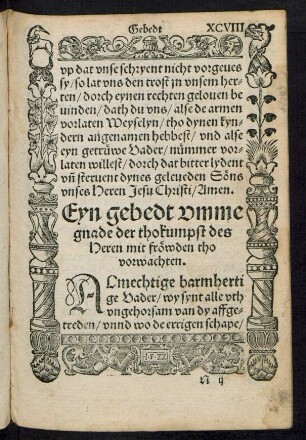 Gebedt XCVIII
vp dat vnse schryent nicht vorgeues
sy/ so lat vns den trost jn vnsem her-
ten/ dorch eynen rechten gelouen be
uinden/ dath du vns/ alse de armen
vorlaten Weyselyn/ tho dynen kyn-
dern angenamen hebbest/ vnd alse
eyn getrüwe Vader/ nümmer vor-
laten willest/ dorch dat bitter lydent
vñ steruent dynes geleueden Söns
vnses Heren Jesu Christi/ Amen.
Eyn gebedt vmme
gnade der thokumpst des
Heren mit fröwden tho
vorwachten.
ALmechtige barmherti
ge Vader/ wy synt alle vth
vngehorsam van dy affge-
treden/ vnnd wo de errigen schape/
N ij